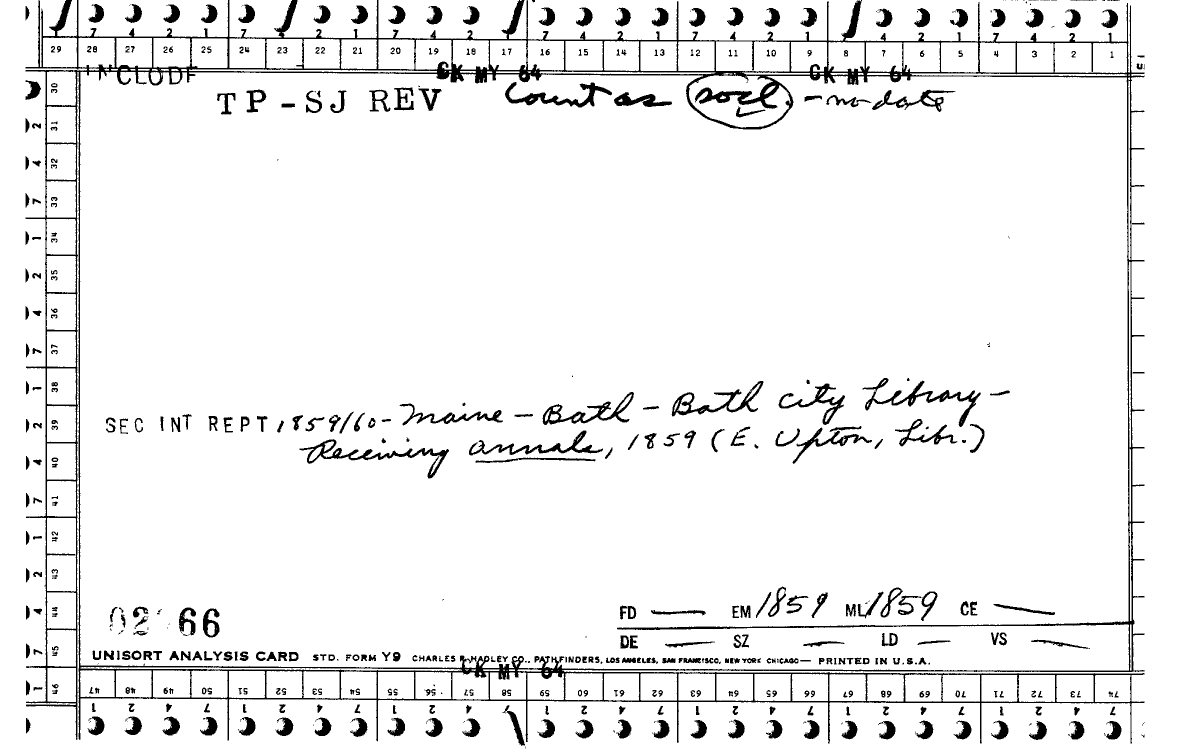 7 4 2 1 7 4 2 1 7 4 2 1 7 4 2 1 7 4 2 1 7 4 2 1 7 4 2 1
29 28 27 26 25 24 23 22 21 20 19 18 17 16 15 14 13 12 11 10 9 8 7 6 5 4 3 2 1
CK MY 64 CK MY 64
TP-SJ REV Count as socl. - no date
30
2 31
4 32
7 33
1 34
2 35
4 36
7 37
1 38
2 39
4 40
7 41
1 42
2 43
4 44
7 45
1 46
SEC INT REPT 1859/60 - Maine - Bath - Bath City Library -
Receiving annals, 1859 (E. Upton, Libr.)
66
FD — EM 1859 ML 1859 CE —
DE — SZ — LD — VS —
UNISORT ANALYSIS CARD STD. FORM Y9 CHARLES R. HADLEY CO., PATHFINDERS, LOS ANGELES, SAN FRANCISCO, NEW YORK CHICAGO — PRINTED IN U.S.A.
CK MY 64
47 48 49 50 51 52 53 54 55 56 57 58 59 60 61 62 63 64 65 66 67 68 69 70 71 72 73 74
1 2 4 7 1 2 4 7 1 2 4 7 1 2 4 7 1 2 4 7 1 2 4 7 1 2 4 7